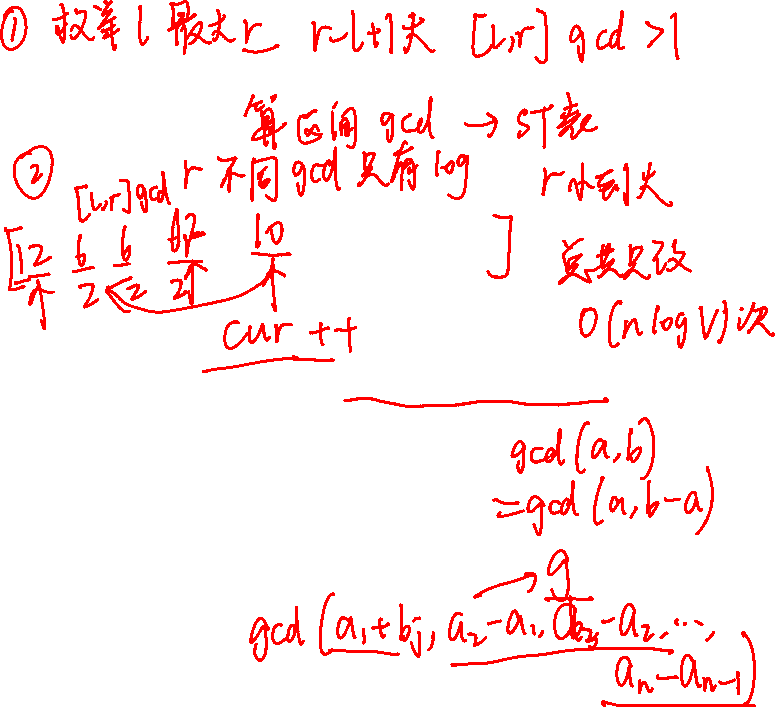 ① 枚举 l 最大 r r-l+1大 [l,r] gcd >1
算区间 gcd → ST表
② [l,r]gcd r 不同gcd只有log r 小到大
[12 6 6 10 ]
2 2 2
总共只改
O(n log V)次
cur ++
gcd(a,b)
=gcd(a,b-a)
g
gcd(a₁+bⱼ, a₂-a₁, a₃-a₂, ...,
aₙ-aₙ₋₁)